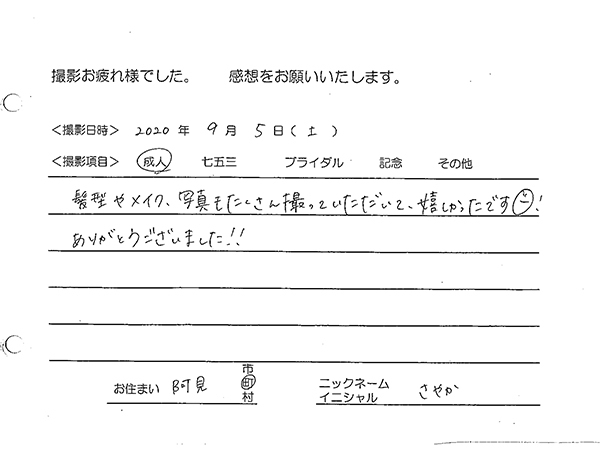 撮影お疲れ様でした。　感想をお願いいたします。
＜撮影日時＞ 2020 年 9 月 5 日（土）
＜撮影項目＞ 成人 七五三 ブライダル 記念 その他
髪型やメイク、写真もたくさん撮っていただいて、嬉しかったです!
ありがとうございました!!
お住まい 阿見 市町村
ニックネーム イニシャル さやか